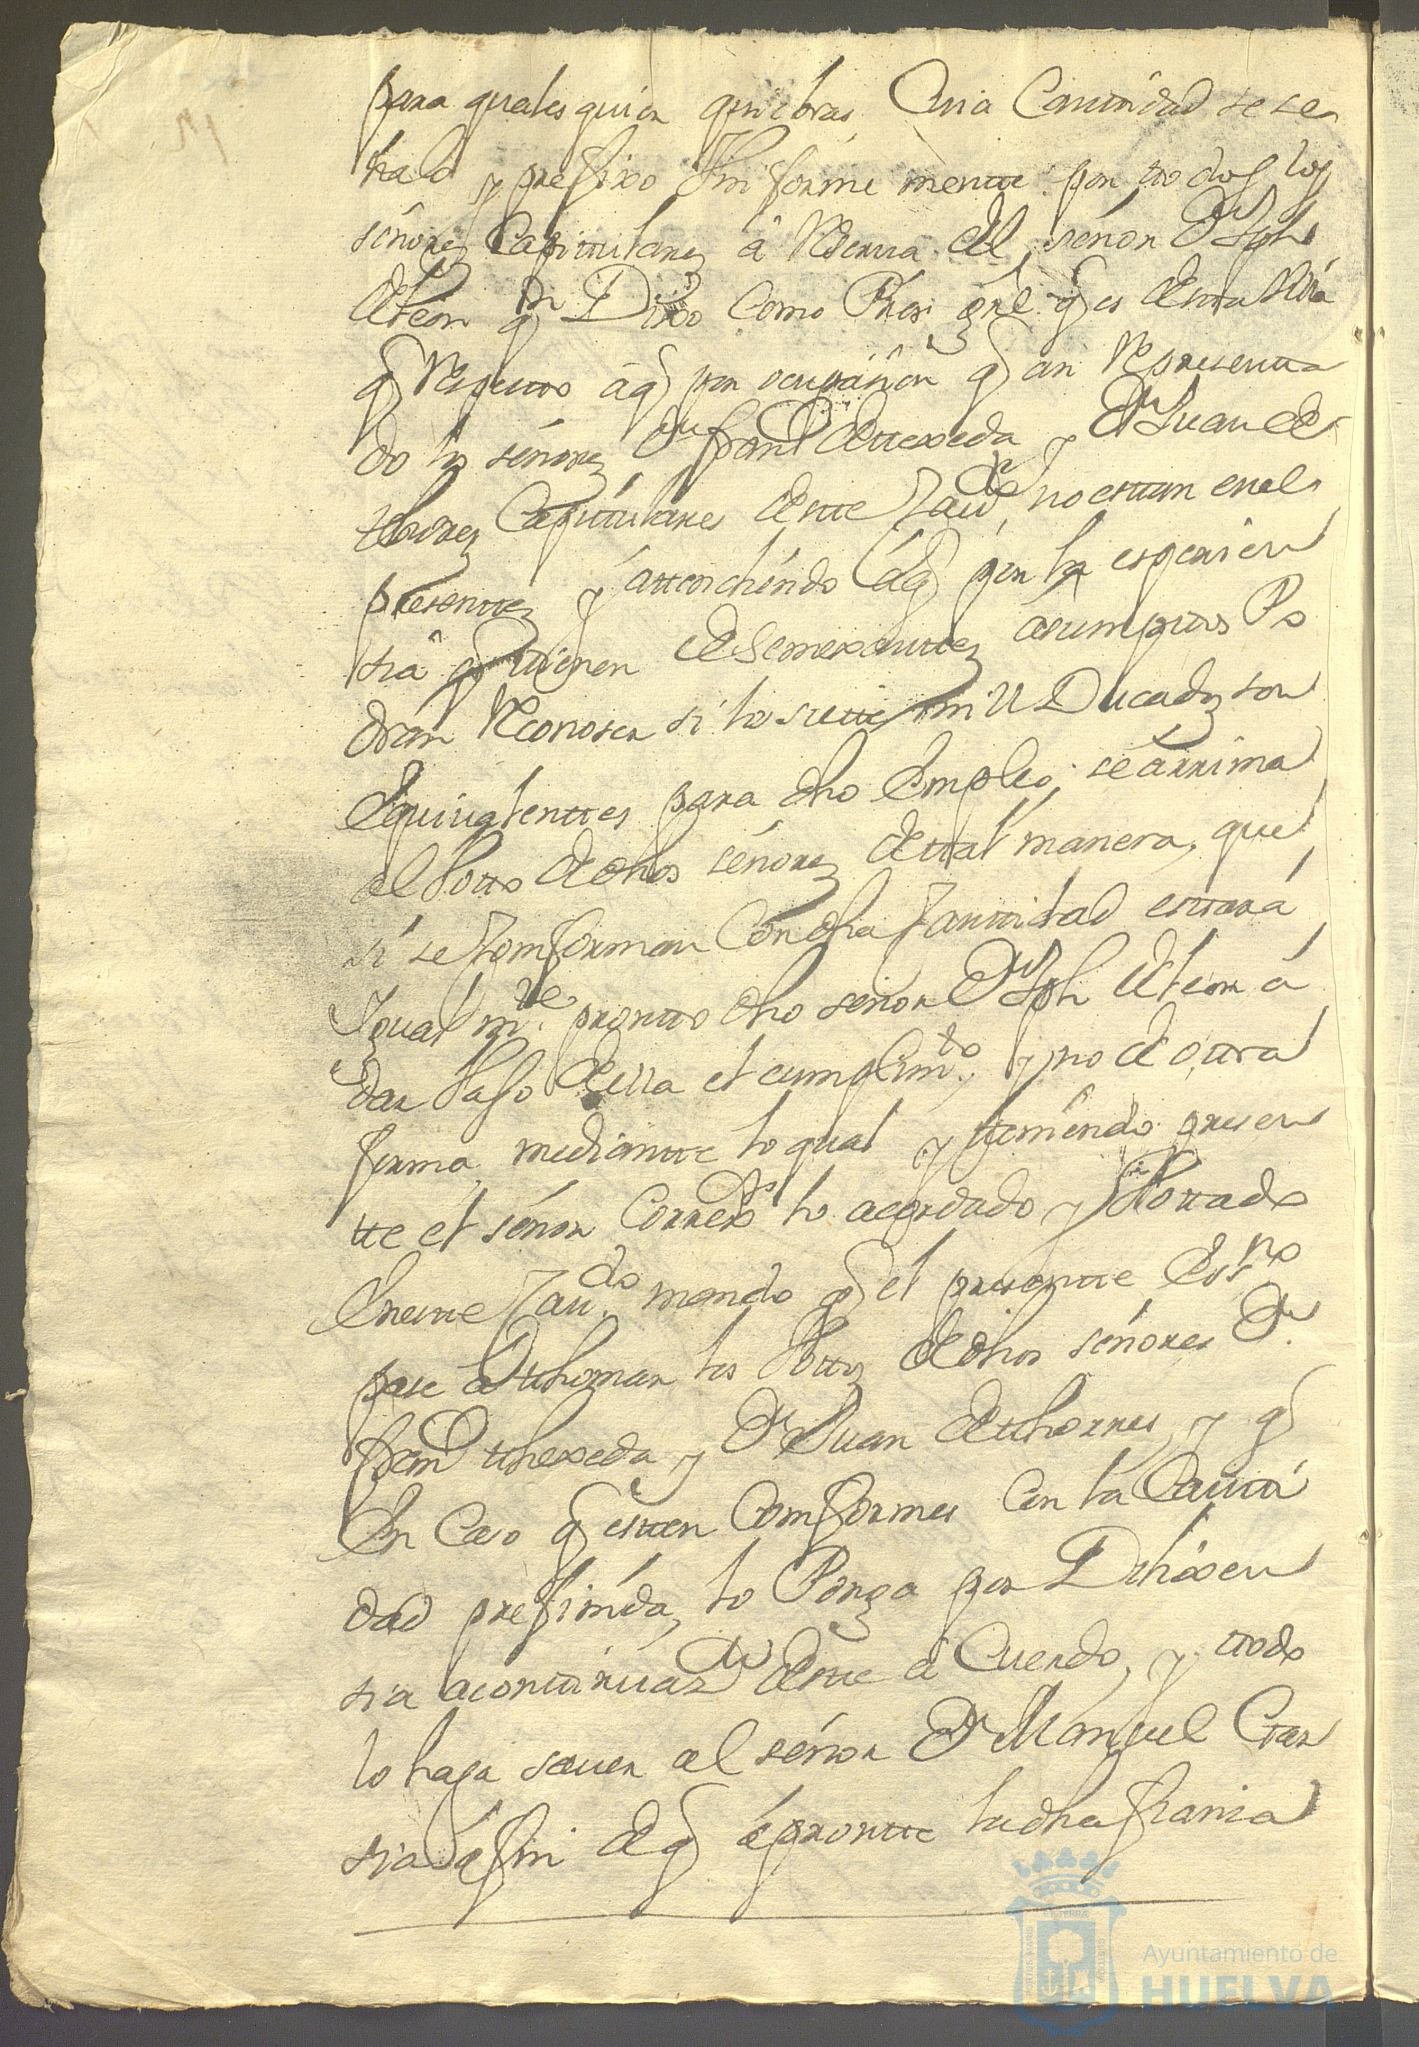 para quales quier quiebras, Cuia Cantidad se se
ñalo y prefixo Uniforme mente por todos los
señores Capitulares â Reserva del señor Dn Jph
de Leon qn Dixo Como Pror grl q es desta Villa
q Respecto áq por ocupasion q an Representa
do los señores Dn Franco de texeda y Dn Juan de
thorres Capitulares deste Cavdo no estan enel
presentes y attendiendo áq por la esperien
sia q tienen de Semexantes asumptos Po
dran Reconoser si los siette mill Ducados son
Equivalentes para dho Empleo, se arrima
al Votto de dhos señores de tal manera, que
si se Conforman Con dha Cantidad estara
Igual mte prontto dho señor Dn Jph de Leon á
dar Vaso della el cumplimto y no de ottra
forma, mediantte lo qual y teniendo presen
tte el señor Correxor lo acordado y Vottado
Eneste Cavdo mando q el presentte Essno
pase á thomar los Vottos de dhos señores Dn
Franco thexeda y Dn Juan de thorres, y q
En Caso q esten Comformes Con la Canti
dad prefinida, lo Ponga por Dilixen
sia acontinuazon deste á Cuerdo, y ttodo
lo haga saver al señor Dn Manuel Gar
sia á fin de q apronte la dha fianza
Ayuntamiento de
HUELVA